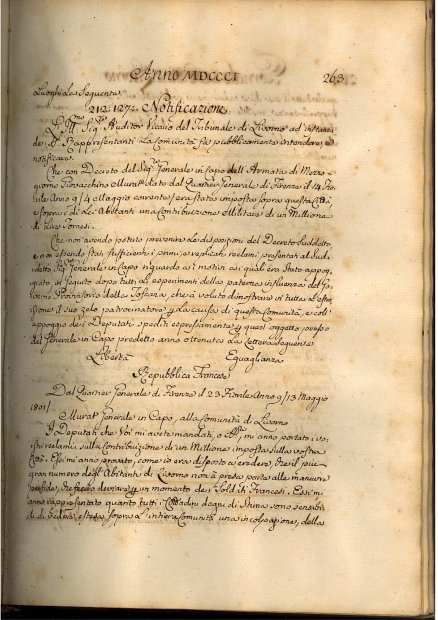 Anno MDCCCI 263
Luoghi la Seguente
212: 127: Notificazione
L'Ill.mo Sig.re Auditor Vicario del Tribunale di Livorno ad istanza
de' SS. Rappresentanti La Comunità fà pubblicamente intendere, e
notificare
Che con Decreto del Sig. Generale in Capo dell'Armata di Mezzo-
giorno Gioacchino Murat dato dal Quartier Generale di Firenze il 14 Fio-
rile Anno 9/4 Maggio corrente, era stata imposta sopra questa Città
e sopra di Lei Abitanti una Contribuzione Militare di un Millione
di Lire Tornesi.
Che non avendo potuto prevenire le disposizioni del Decreto Suddetto
e non essendo stati sufficienti i primi replicati reclami presentati al Sud-
detto Sig. Generale in Capo riguardo ai motivi coi quali era stato appog-
giato, in seguito dopo tutti gli esperimenti della paterna influenza del Go-
verno Provvisorio della Toscana, che à voluto dimostrare in tutta l'esten-
sione il suo zelo patrocinatore per la causa di questa Comunità, e coll'
appoggio dei Deputati spediti espressamente per quest'oggetto presso
del Generale in Capo predetto anno ottenuta la Lettera Seguente
Libertà Eguaglianza
Repubblica Francese
Dal Quartier Generale di Firenze il 23 Fiorile Anno 9/13 Maggio
1801/
Murat Generale in Capo, alla Comunità di Livorno
I Deputati che Voi mi avete mandati, o mi anno portato i vo-
stri reclami sulla Contribuzione di un Millione imposta sulla vostra
Città. Essi mi anno provato, come io era disposto a credere, che il più
gran numero degl'Abitanti di Livorno non à preso parte alle manovre
perfide, che fecero deviare per un momento dei Soldati Francesi. Essi mi
anno rappresentato quanto tutti i Cittadini degni di Stima sono sensibi-
li di vedere estesa sopra l'intiera Comunità una incolpazione, della